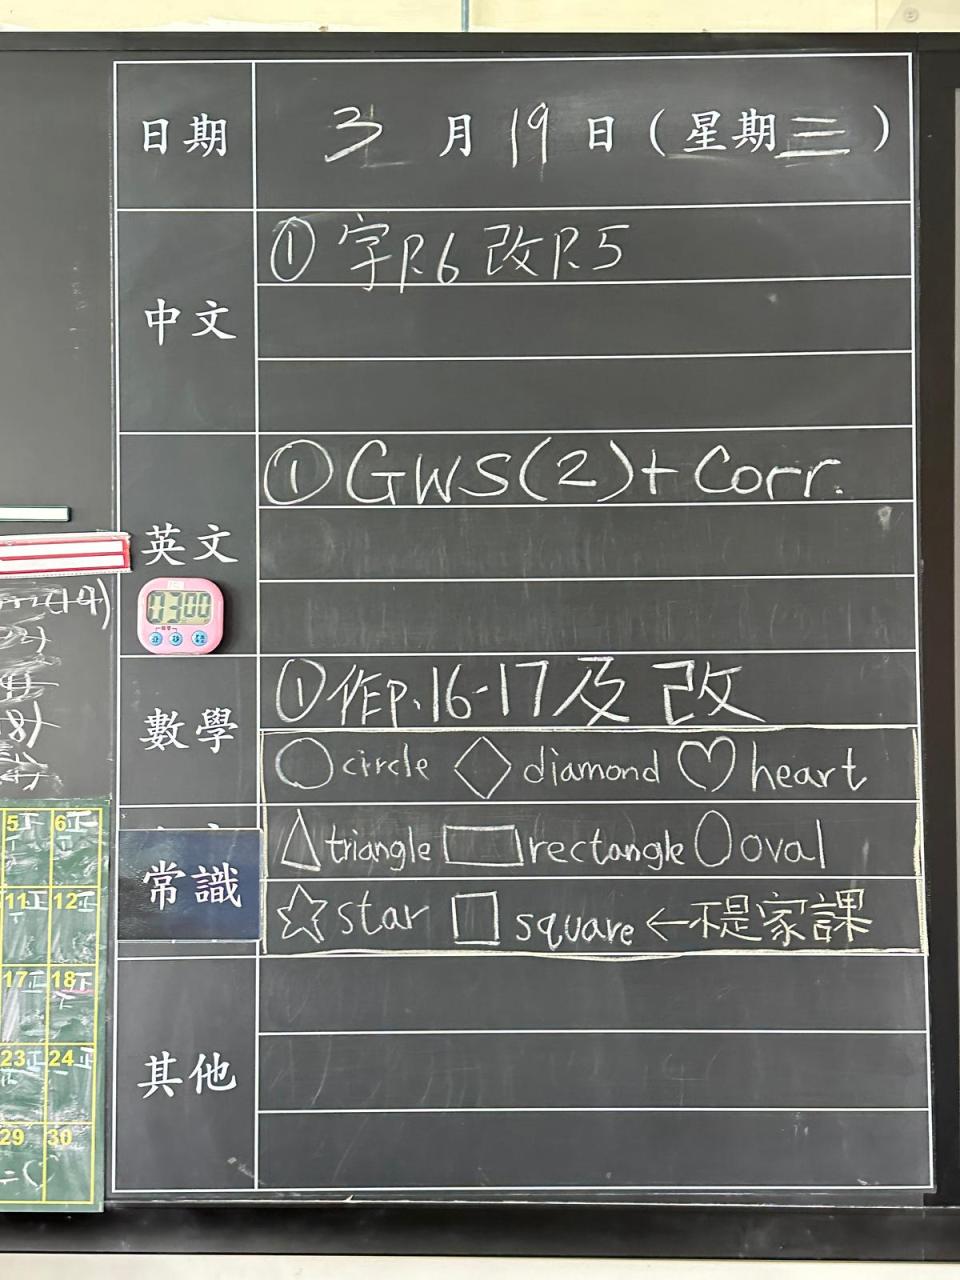 日期 3月19日（星期三）
中文
① 字P.6 改P.5
英文
① GWS(2)+ Corr.
03 00
數學
① 作P.16-17及 改
circle diamond heart
常識
triangle rectangle oval
star square ←不是家課
其他
5正 6正
11正 12正
17正 18下
23正 24正
29 30